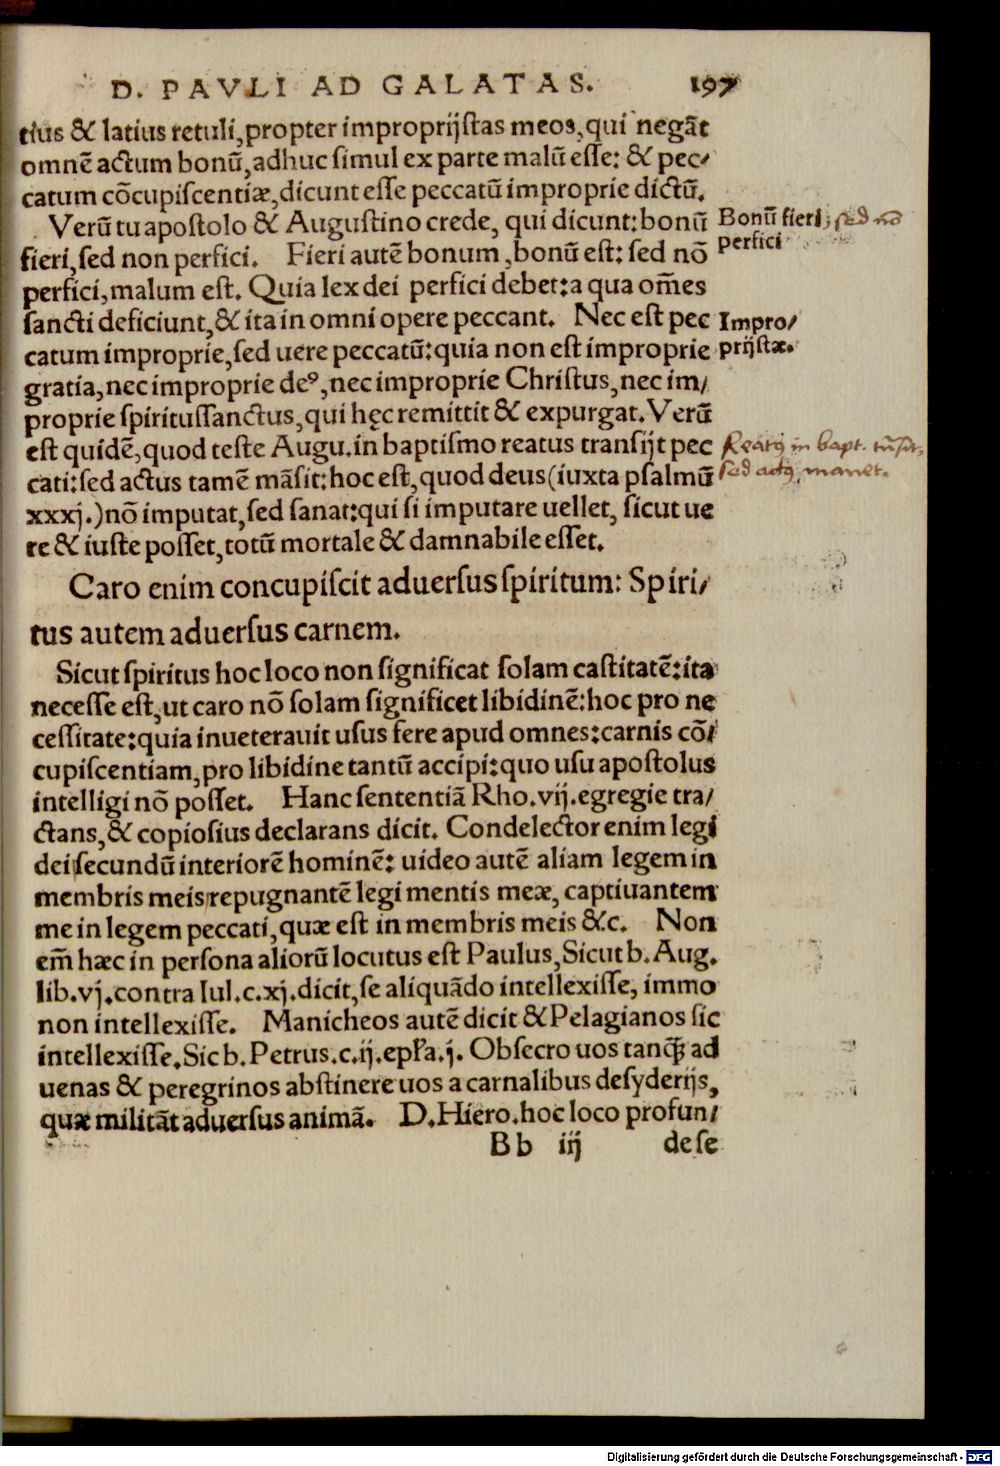 D. PAVLI AD GALATAS. 197
tius & latius retuli, propter improprijstas meos, qui negãt
omnẽ actum bonũ, adhuc simul ex parte malũ esse: & pec/
catum cõcupiscentiæ, dicunt esse peccatũ improprie dictũ.
Verũ tu apostolo & Augustino crede, qui dicunt: bonũ
fieri, sed non perfici. Fieri autẽ bonum, bonũ est: sed nõ
perfici, malum est. Quia lex dei perfici debet: a qua om̃es
sancti deficiunt, & ita in omni opere peccant. Nec est pec
catum improprie, sed uere peccatũ: quia non est improprie
gratia, nec improprie deꝰ, nec improprie Christus, nec im/
proprie spiritussanctus, qui hęc remittit & expurgat. Verũ
est quidẽ, quod teste Augu. in baptismo reatus transijt pec
cati: sed actus tamẽ mãsit: hoc est, quod deus (iuxta psalmũ
xxxj.) nõ imputat, sed sanat: qui si imputare uellet, sicut ue
re & iuste posset, totũ mortale & damnabile esset.
Bonũ fieri, sed nõ
perfici
Impro/
prijstæ.
Reatꝯ in bapt. trãsit,
sed actꝯ manet.
Caro enim concupiscit aduersus spiritum: Spiri/
tus autem aduersus carnem.
Sicut spiritus hoc loco non significat solam castitatẽ: ita
necesse est, ut caro nõ solam significet libidinẽ: hoc pro ne
cessitate: quia inueterauit usus fere apud omnes: carnis cõ/
cupiscentiam, pro libidine tantũ accipi: quo usu apostolus
intelligi nõ posset. Hanc sententiã Rho. vij. egregie tra/
ctans, & copiosius declarans dicit. Condelector enim legi
dei secundũ interiorẽ hominẽ: uideo autẽ aliam legem in
membris meis repugnantẽ legi mentis meæ, captiuantem
me in legem peccati, quæ est in membris meis &c. Non
em̃ hæc in persona aliorũ locutus est Paulus, Sicut b. Aug.
lib. vj. contra Iul. c. xj. dicit, se aliquãdo intellexisse, immo
non intellexisse. Manicheos autẽ dicit & Pelagianos sic
intellexisse. Sic b. Petrus. c. ij. epl̃a. j. Obsecro uos tanꝗ̃ ad
uenas & peregrinos abstinere uos a carnalibus desyderijs,
quæ militãt aduersus animã. D. Hiero. hoc loco profun/
Bb iij dese
Digitalisierung gefördert durch die Deutsche Forschungsgemeinschaft - DFG